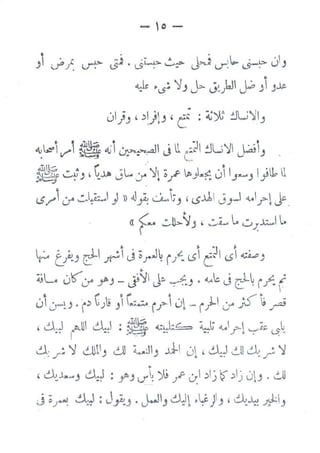 — ١٥ —
وان حبسنى حابس فمحلى حيث حبستنى . فمتى حبس بمرض أو
عدو أو ضل الطريق حل ولا شىء عليه
والانساك ثلاثة : تمتع ، وإفراد ، وقران
وأفضل الانساك التمتع لما فى الصحيحين أنه ﷺ أمر أصحابه
لما طافوا وسعوا أن يجعلوها عمرة إلا من ساق هديًا ، وثبت ﷺ
على إحرامه لسوق الهدى ، وتأسف بقوله « لو استقبلت من أمرى
ما استدبرت ما سقت ، ولأحللت معكم »
وصفته أى التمتع أى يحرم بالعمرة فى أشهر الحج ويفرغ منها
ثم يحرم بالحج فى عامه . ويجب على الأفقى – وهو من كان مسافة
قصر فأكثر من الحرم – إن أحرم متمتعًا أو قارنًا دم . ويسن أن
يلبى عقب إحرامه تلبية كتلبيته ﷺ : لبيك اللهم لبيك ،
لا شريك لك لبيك ، إن الحمد والنعمة لك والملك لا شريك
لك . وإن زاد كما زاد ابن عمر فلا بأس وهو : لبيك وسعديك ،
والخير بيديك ، والرغباء إليك والعمل . ويقول : لبيك بعمرة فى